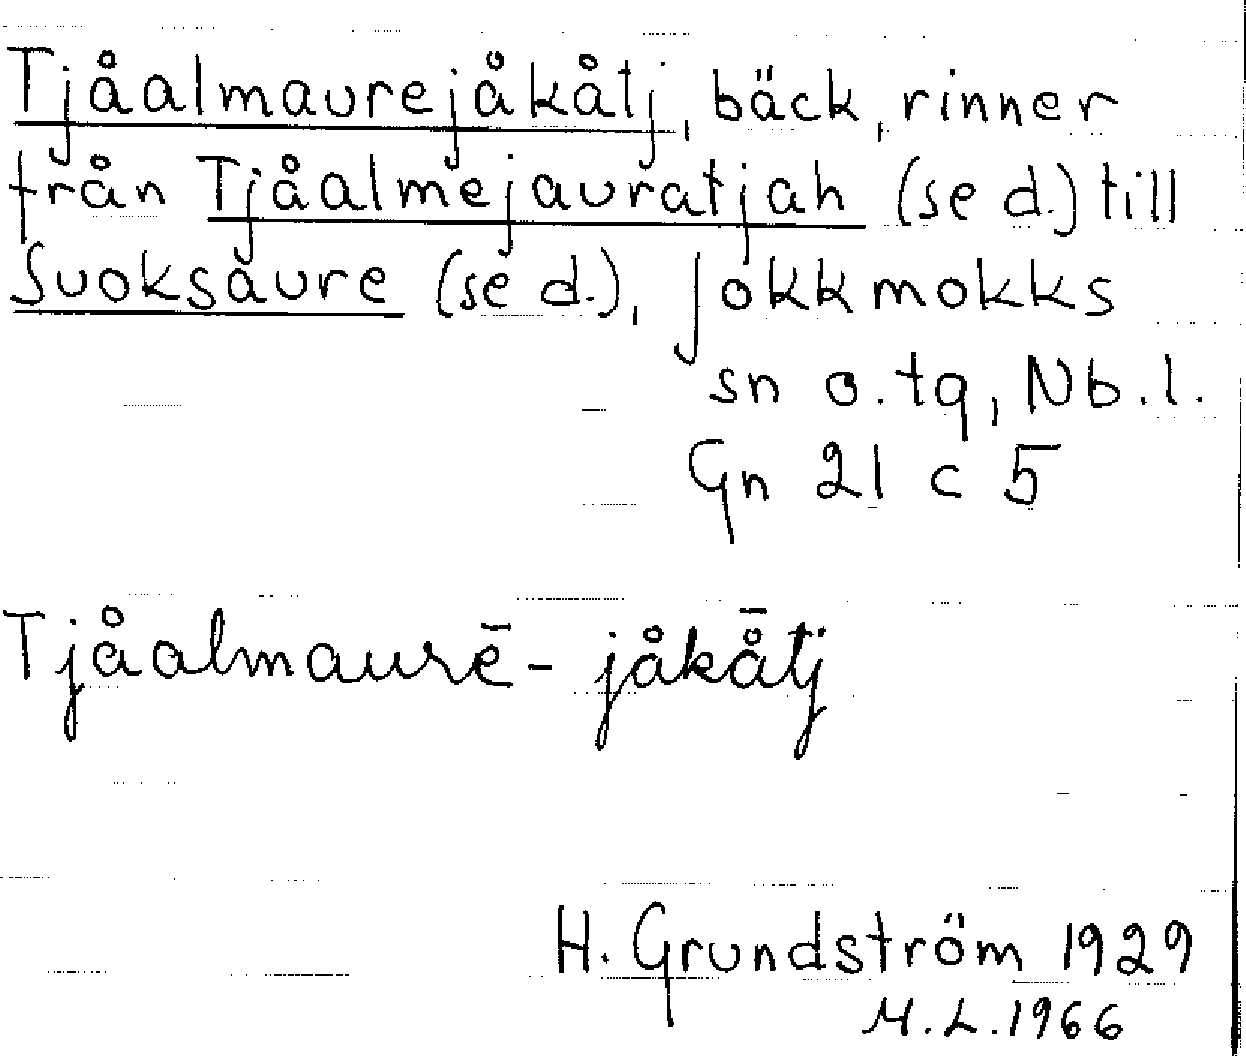 Tjåalmaurejåkåtj, bäck, rinner
från Tjåalmejauratjah (se d.) till
Suoksaure (se d.), Jokkmokks
sn o. tg, Nb.l.
Gn 21 c 5
Tjåalmaurē - jåkå̄tj
H. Grundström 1929
M.L. 1966